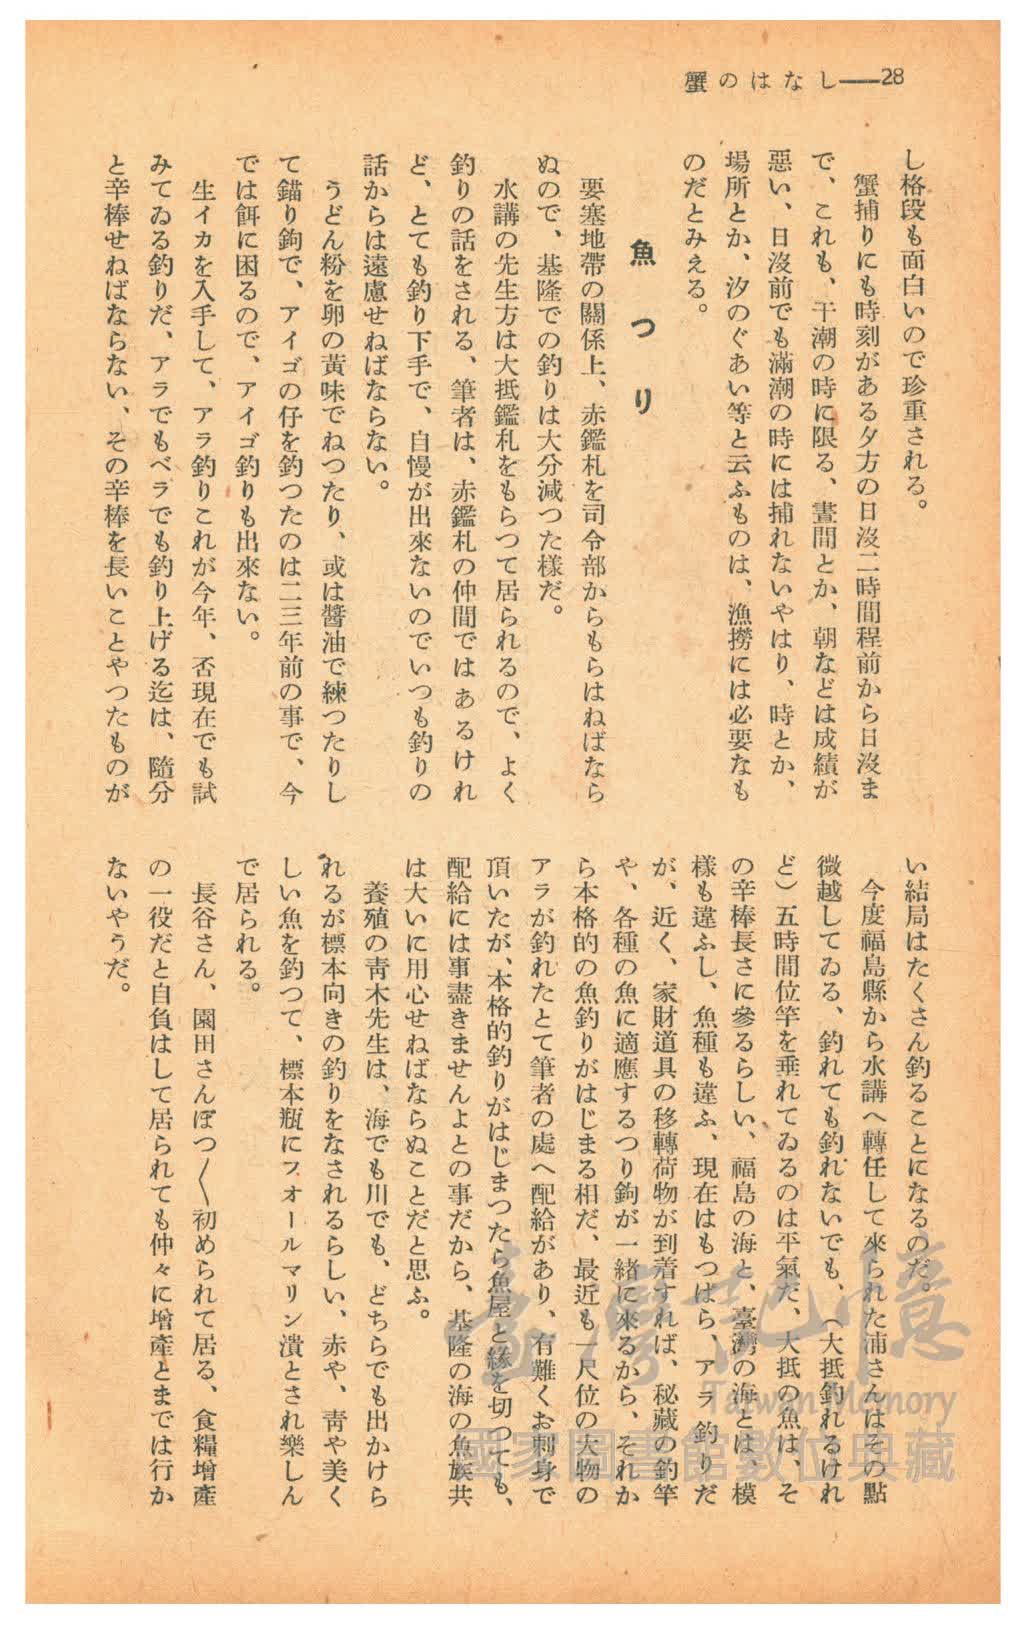 蟹のはなし——28
し格段も面白いので珍重される。
蟹捕りにも時刻がある夕方の日沒二時間程前から日沒ま
で、これも、干潮の時に限る、晝間とか、朝などは成績が
惡い、日沒前でも滿潮の時には捕れないやはり、時とか、
場所とか、汐のぐあい等と云ふものは、漁撈には必要なも
のだとみえる。
魚つり
要塞地帶の關係上、赤鑑札を司令部からもらはねばなら
ぬので、基隆での釣りは大分減つた樣だ。
水講の先生方は大抵鑑札をもらつて居られるので、よく
釣りの話をされる、筆者は、赤鑑札の仲間ではあるけれ
ど、とても釣り下手で、自慢が出來ないのでいつも釣りの
話からは遠慮せねばならない。
うどん粉を卵の黃味でねつたり、或は醬油で練つたりし
て錨り鉤で、アイゴの仔を釣つたのは二三年前の事で、今
では餌に困るので、アイゴ釣りも出來ない。
生イカを入手して、アラ釣りこれが今年、否現在でも試
みてゐる釣りだ、アラでもベラでも釣り上げる迄は、隨分
と辛棒せねばならない、その辛棒を長いことやつたものが
い結局はたくさん釣ることになるのだ。
今度福島縣から水講へ轉任して來られた浦さんはその點
微越してゐる、釣れても釣れないでも、（大抵釣れるけれ
ど）五時間位竿を垂れてゐるのは平氣だ、大抵の魚は、そ
の辛棒長さに參るらしい、福島の海と、臺灣の海とは、模
樣も違ふし、魚種も違ふ、現在はもつぱら、アラ釣りだ
が、近く、家財道具の移轉荷物が到着すれば、秘藏の釣竿
や、各種の魚に適應するつり鉤が一緒に來るから、それか
ら本格的の魚釣りがはじまる相だ、最近も一尺位の大物の
アラが釣れたとて筆者の處へ配給があり、有難くお刺身で
頂いたが、本格的釣りがはじまつたら魚屋と緣を切つても、
配給には事盡きませんよとの事だから、基隆の海の魚族共
は大いに用心せねばならぬことだと思ふ。
養殖の靑木先生は、海でも川でも、どちらでも出かけら
れるが標本向きの釣りをなされるらしい、赤や、靑や美く
しい魚を釣つて、標本瓶にフォールマリン漬とされ樂しん
で居られる。
長谷さん、園田さんぼつ〱初められて居る、食糧增產
の一役だと自負はして居られても仲々に增產とまでは行か
ないやうだ。
臺灣記憶
Taiwan Memory
國家圖書館數位典藏